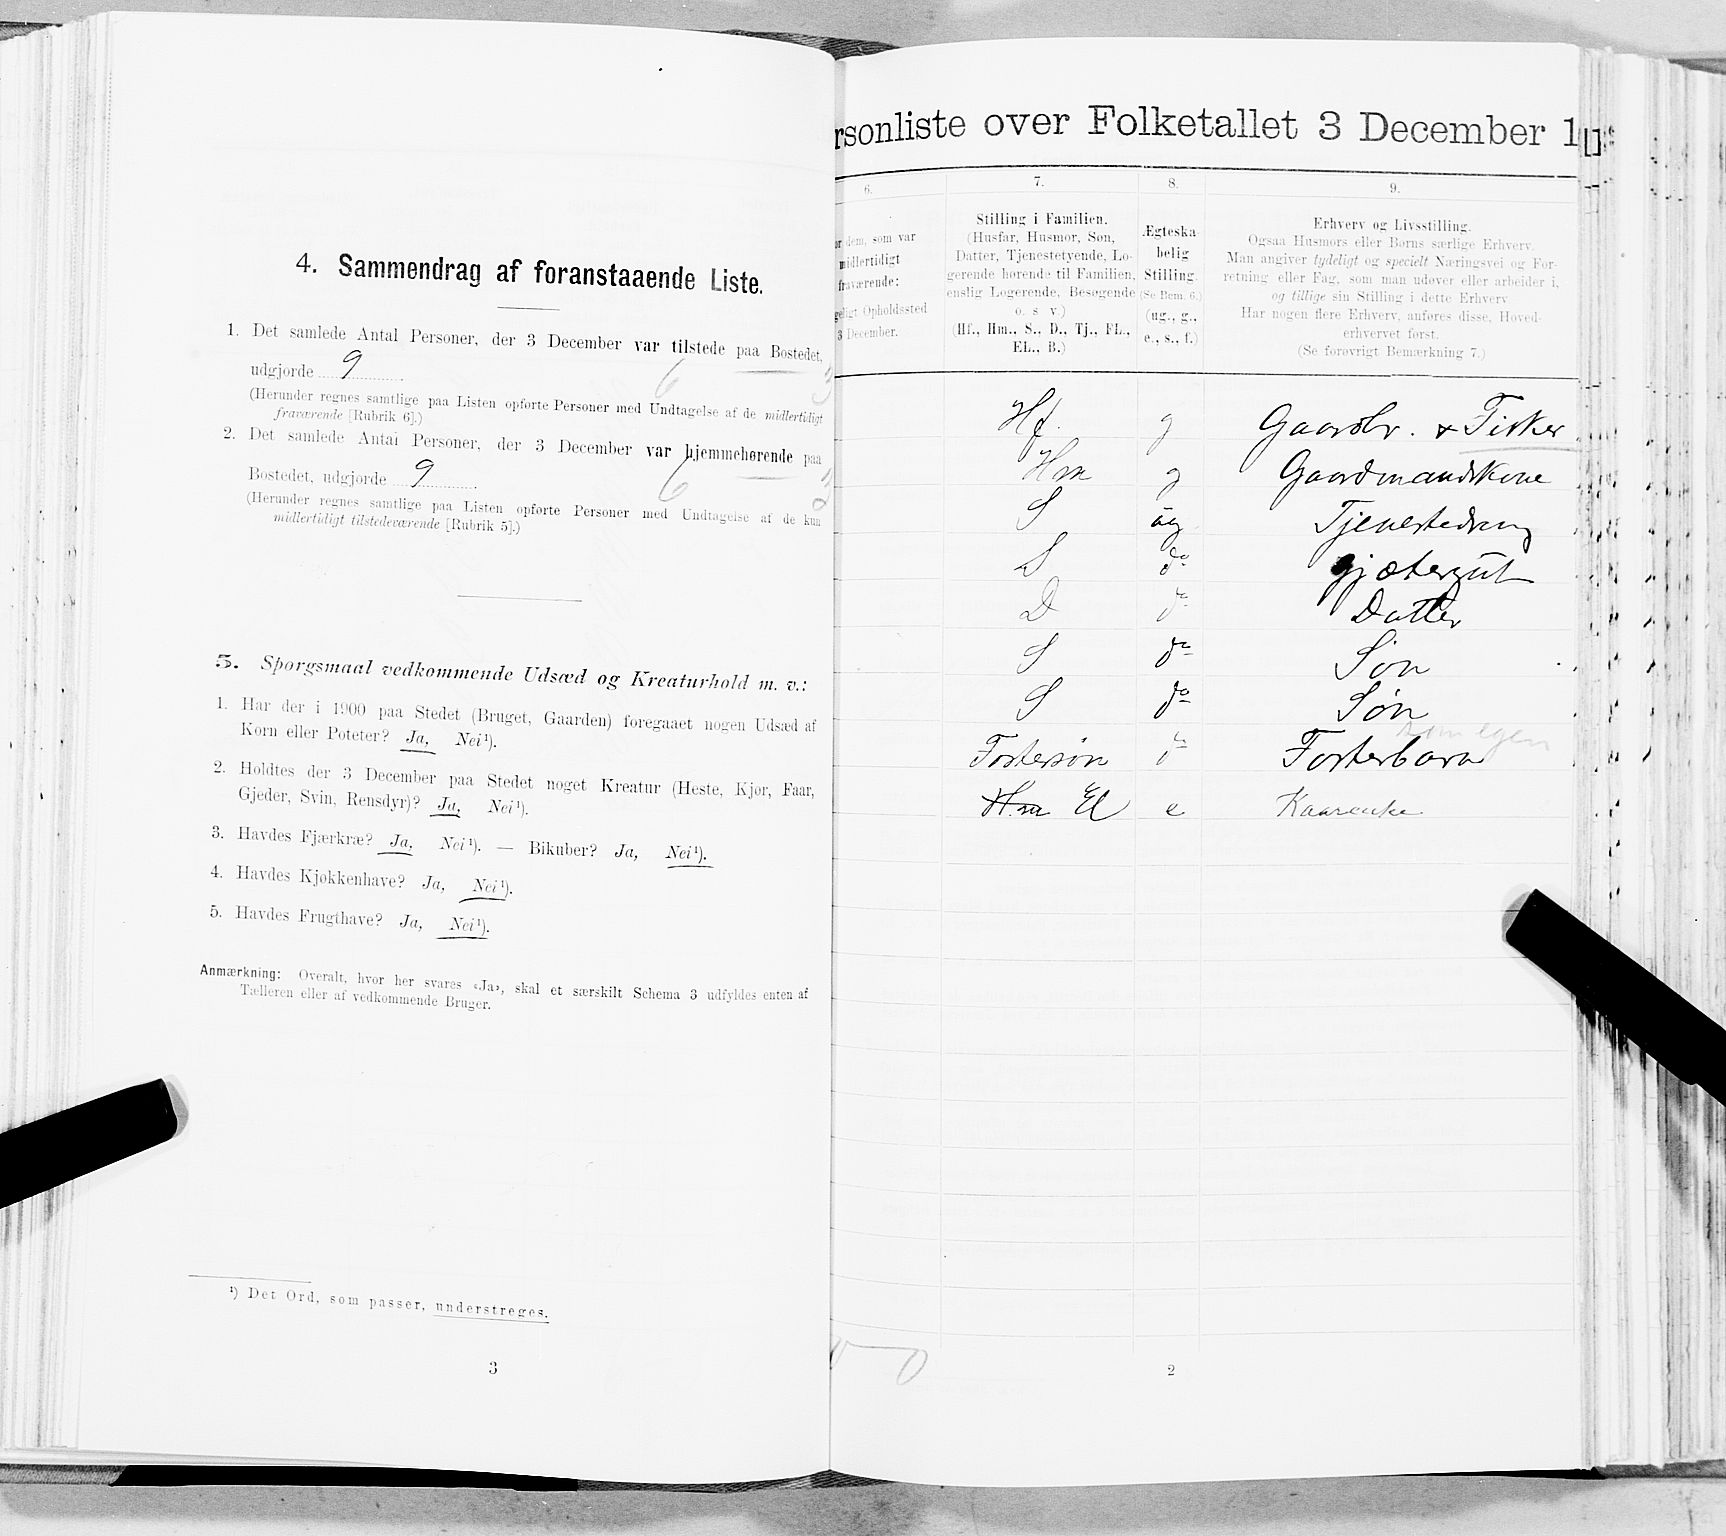 4. Sammendrag af foranstaaende Liste.
1. Det samlede Antal Personer, der 3 December var tilstede paa Bostedet,
udgjorde 9 6
(Herunder regnes samtlige paa Listen opførte Personer med Undtagelse af de midlertidigt
fraværende [Rubrik 6].)
2. Det samlede Antal Personer, der 3 December var hjemmehørende paa
Bostedet, udgjorde 9 6
(Herunder regnes samtlige paa Listen opførte Personer med Undtagelse af de kun
midlertidigt tilstedeværende [Rubrik 5].)
5. Spørgsmaal vedkommende Udsæd og Kreaturhold m. v.:
1. Har der i 1900 paa Stedet (Bruget, Gaarden) foregaaet nogen Udsæd af
Korn eller Poteter? Ja, Nei¹).
2. Holdtes der 3 December paa Stedet noget Kreatur (Heste, Kjør, Faar,
Gjeder, Svin, Rensdyr)? Ja, Nei¹).
3. Havdes Fjærkræ? Ja, Nei¹). — Bikuber? Ja, Nei¹).
4. Havdes Kjøkkenhave? Ja, Nei¹).
5. Havdes Frugthave? Ja, Nei¹).
Anmærkning: Overalt, hvor her svares «Ja», skal et særskilt Schema 3 udfyldes enten af
Tælleren eller af vedkommende Bruger.
¹) Det Ord, som passer, understreges.
3
rsonliste over Folketallet 3 December 1
6. 7. 8. 9.
or dem, som var
midlertidigt
fraværende:
geligt Opholdssted
3 December.
Stilling i Familien.
(Husfar, Husmor, Søn,
Datter, Tjenestetyende, Lo-
gerende hørende til Familien,
enslig Logerende, Besøgende
o. s. v.)
(Hf., Hm., S., D., Tj., FL.,
EL., B.)
Ægteska-
belig
Stilling.
(Se Bem. 6.)
(ug., g.,
e., s., f.)
Erhverv og Livsstilling.
Ogsaa Husmors eller Børns særlige Erhverv.
Man angiver tydeligt og specielt Næringsvei og For-
retning eller Fag, som man udøver eller arbeider i,
og tillige sin Stilling i dette Erhverv
Har nogen flere Erhverv, anføres disse, Hoved-
erhvervet først.
(Se forøvrigt Bemærkning 7.)
Hf. g Gaardbr. & Fisker
Hm g Gaardmandskone
S ug Tjenestedreng
S do gjætergut
D do Datter
S do Søn
S do Søn
som egen
Fostersøn do Fosterbarn
Hm El e Kaarenke
2